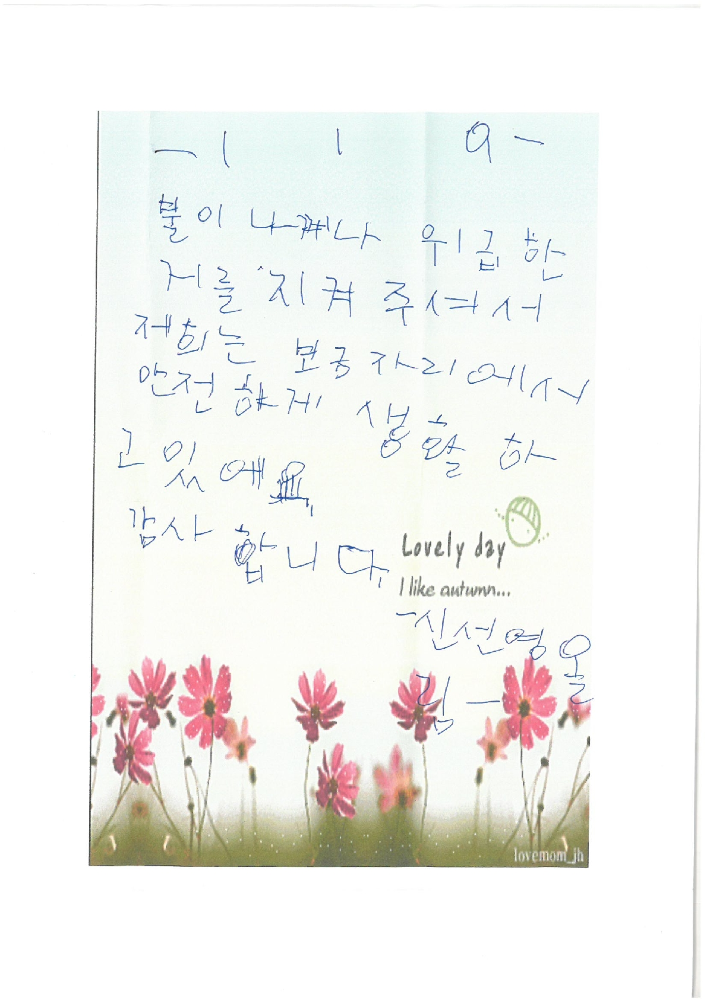 - 1 1 9 -
불이 나꺼나 위급한
저를 지켜 주셔서
저희는 보금자리에서
안전하게 생활하
고 있에요,
감사합니다,
Lovely day
I like autumn...
-신선영 올
림-
lovemom_jh